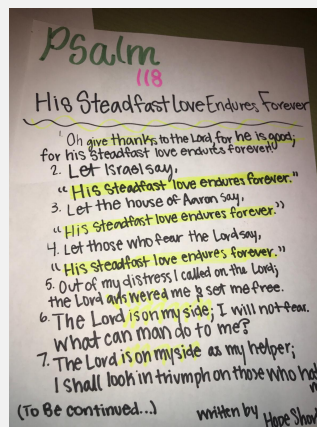 Psalm
118
His Steadfast Love Endures Forever
1. Oh give thanks to the Lord, for he is good;
for his steadfast love endures forever!
2. Let Israel say,
"His Steadfast love endures forever."
3. Let the house of Aaron say,
"His steadfast love endures forever."
4. Let those who fear the Lord say,
"His steadfast love endures forever."
5. Out of my distress I called on the Lord;
the Lord answered me & set me free.
6. The Lord is on my side; I will not fear.
What can man do to me?
7. The Lord is on my side as my helper;
I shall look in triumph on those who
(To Be continued...)
written by Hope